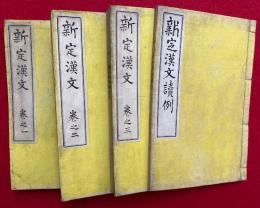 新定漢文讀例
新定漢文 卷之三
新定漢文 卷之二
新定漢文 卷之一